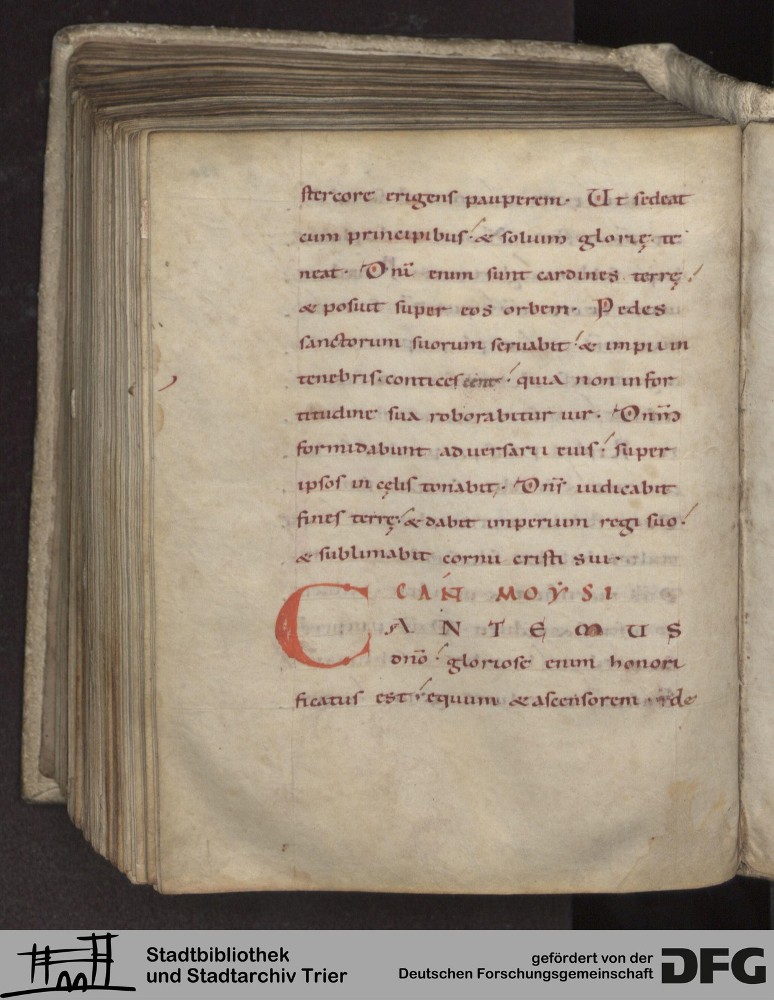 stercore erigens pauperem· Ut sedeat
cum principibus· & solium glorię· te
neat· Dnī enim sunt cardines terrę·
& posuit super eos orbem· Pedes
sanctorum suorum seruabit· & impii in
tenebris· conticescent· quia non in for
titudine sua roborabitur uir· Dnm̄
formidabunt aduersarii eius· super
ipsos in cęlis tonabit· Dns̄ iudicabit
fines terrę· & dabit imperium regi suo·
& sublimabit cornu cristi sui·
CAN̄ MOYSI
CANTEMUS
dnō· gloriose enim honori
ficatus est· equum & ascensorem
Stadtbibliothek
und Stadtarchiv Trier
gefördert von der
Deutschen Forschungsgemeinschaft
DFG